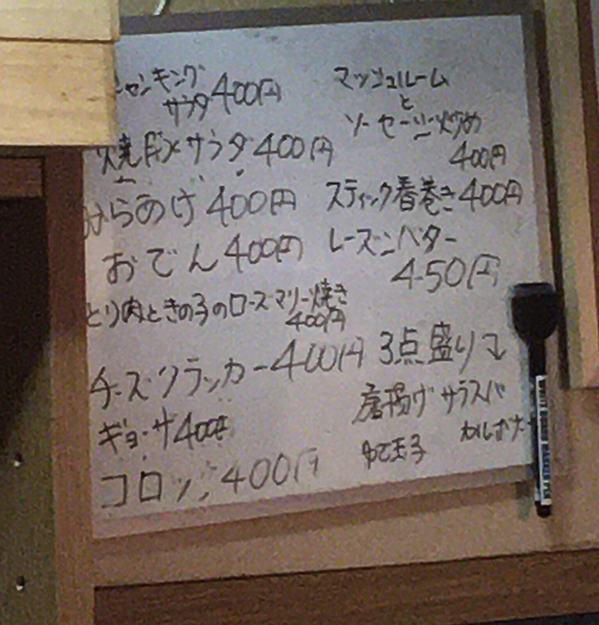 シャンキング
サラダ 400円
焼豚サラダ 400円
からあげ 400円
おでん 400円
とり肉ときの子のローズマリー焼き
400円
チーズクラッカー 400円
ギョーザ 400円
コロッケ 400円
マッシュルーム
と
ソーセージ炒め
400円
スティック春巻き 400円
レーズンバター
450円
3点盛り
唐揚げ サラスパ
ゆで玉子